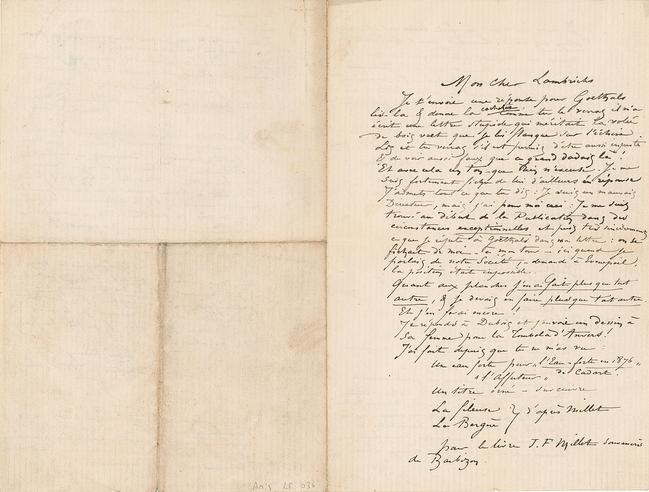 Mon cher Lambrichs
Je t'envoie une réponse pour Goethals
lis-la & donne la comme tu le verras il m'a
écrit une lettre stupide qui méritait la volée
de bois vert que je lui flanque sur l'échine.
Lis et tu verras s'il est permis d'être aussi
& de voir aussi faux que ce grand dadais là!
Et avec cela un ton que rien n'excuse. Je me
suis fortement de lui d'ailleurs en réponse
J'admets tout ce que tu dis: Je suis un mauvais
Directeur, mais j'ai pour moi ceci: Je me suis
trouvé au début de la Publication dans des
circonstances exceptionnelles et puis très
ce que je répète à Goethals dans ma lettre: on se
fichait de moi à mon tour ici quand je
parlais de notre Société, demande à
la position était impossible.
Quant aux planches j'en ai fait plus que tout
autre, & je devais en faire plus que tout autre.
Et j'en ferai encore!
Je réponds à Dubois et j'envoie un dessin à
sa femme pour la Tombola d'Anvers!
J'ai fait depuis que tu m'as vu
Un eau forte pour "l'Eau-forte en 1876"
"l'Affuteur" de Cadart.
Un titre orné - sur cuivre
La fileuse } d'après Millet
La Bergère
pour le livre J. F. Millet souvenirs
de Barbizon
Am's LS 036